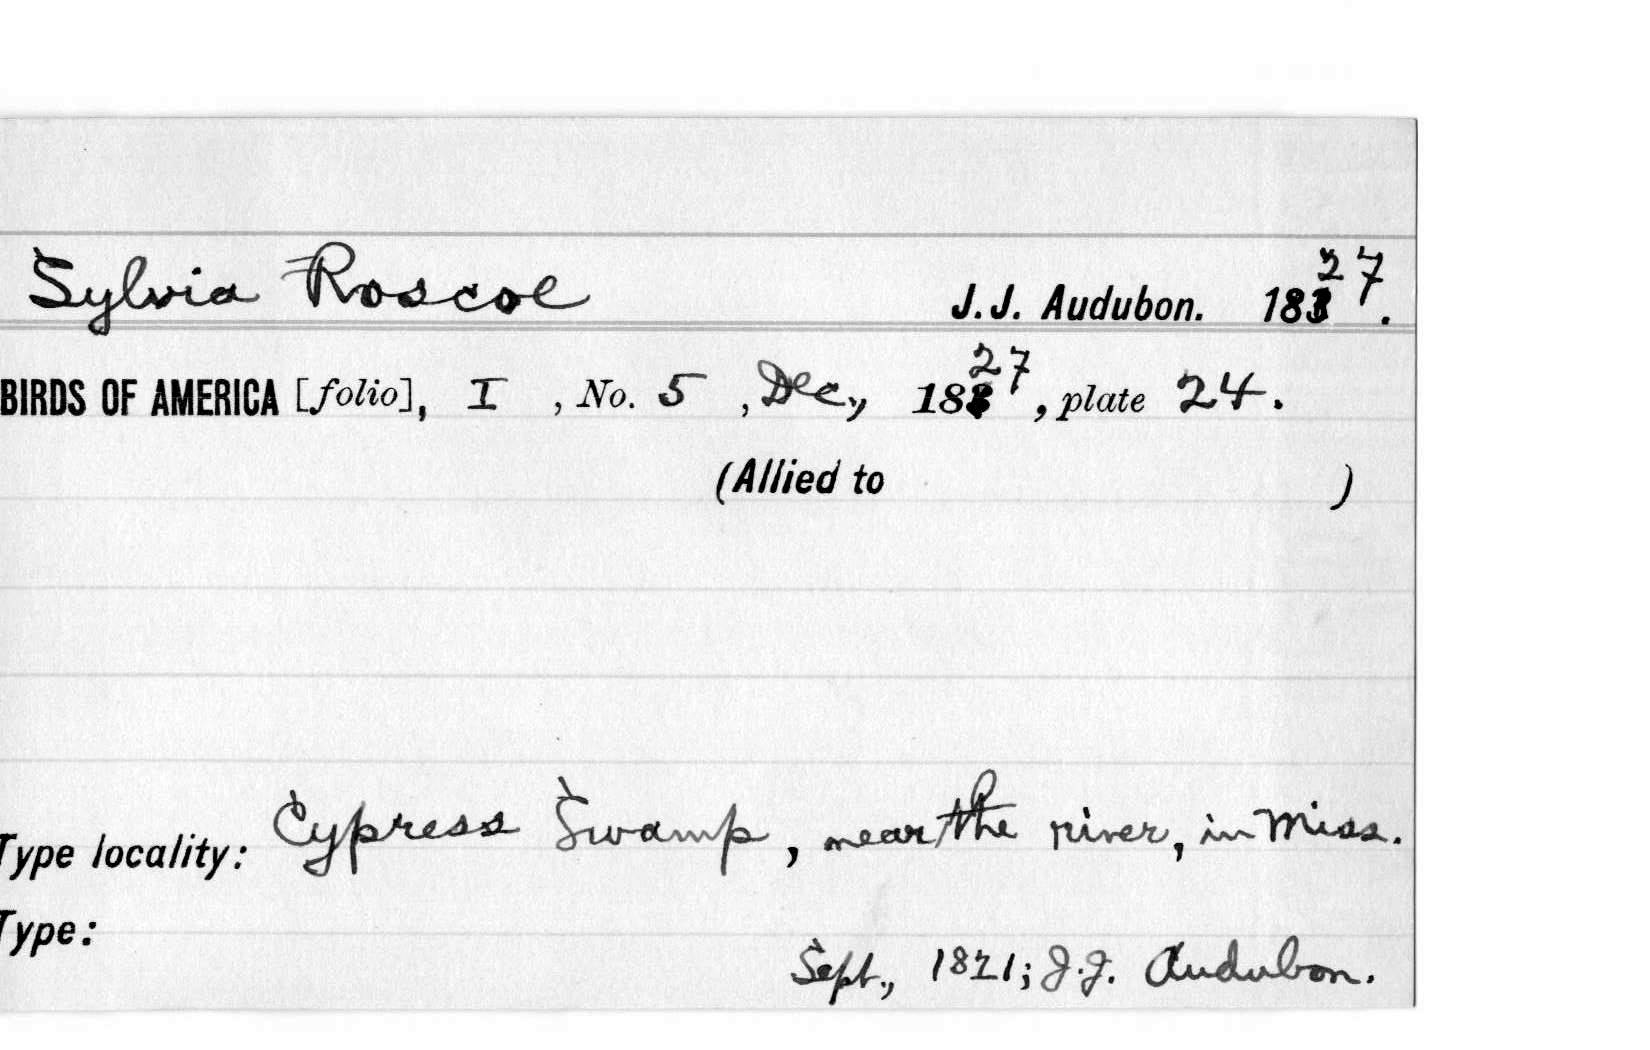 Sylvia Roscoe J.J. Audubon. 1827.
BIRDS OF AMERICA [folio], I , No. 5 , Dec., 1827, plate 24.
(Allied to )
Type locality: Cypress Swamp, near the river, in Miss.
Type:
Sept., 1821; J.J. Audubon.